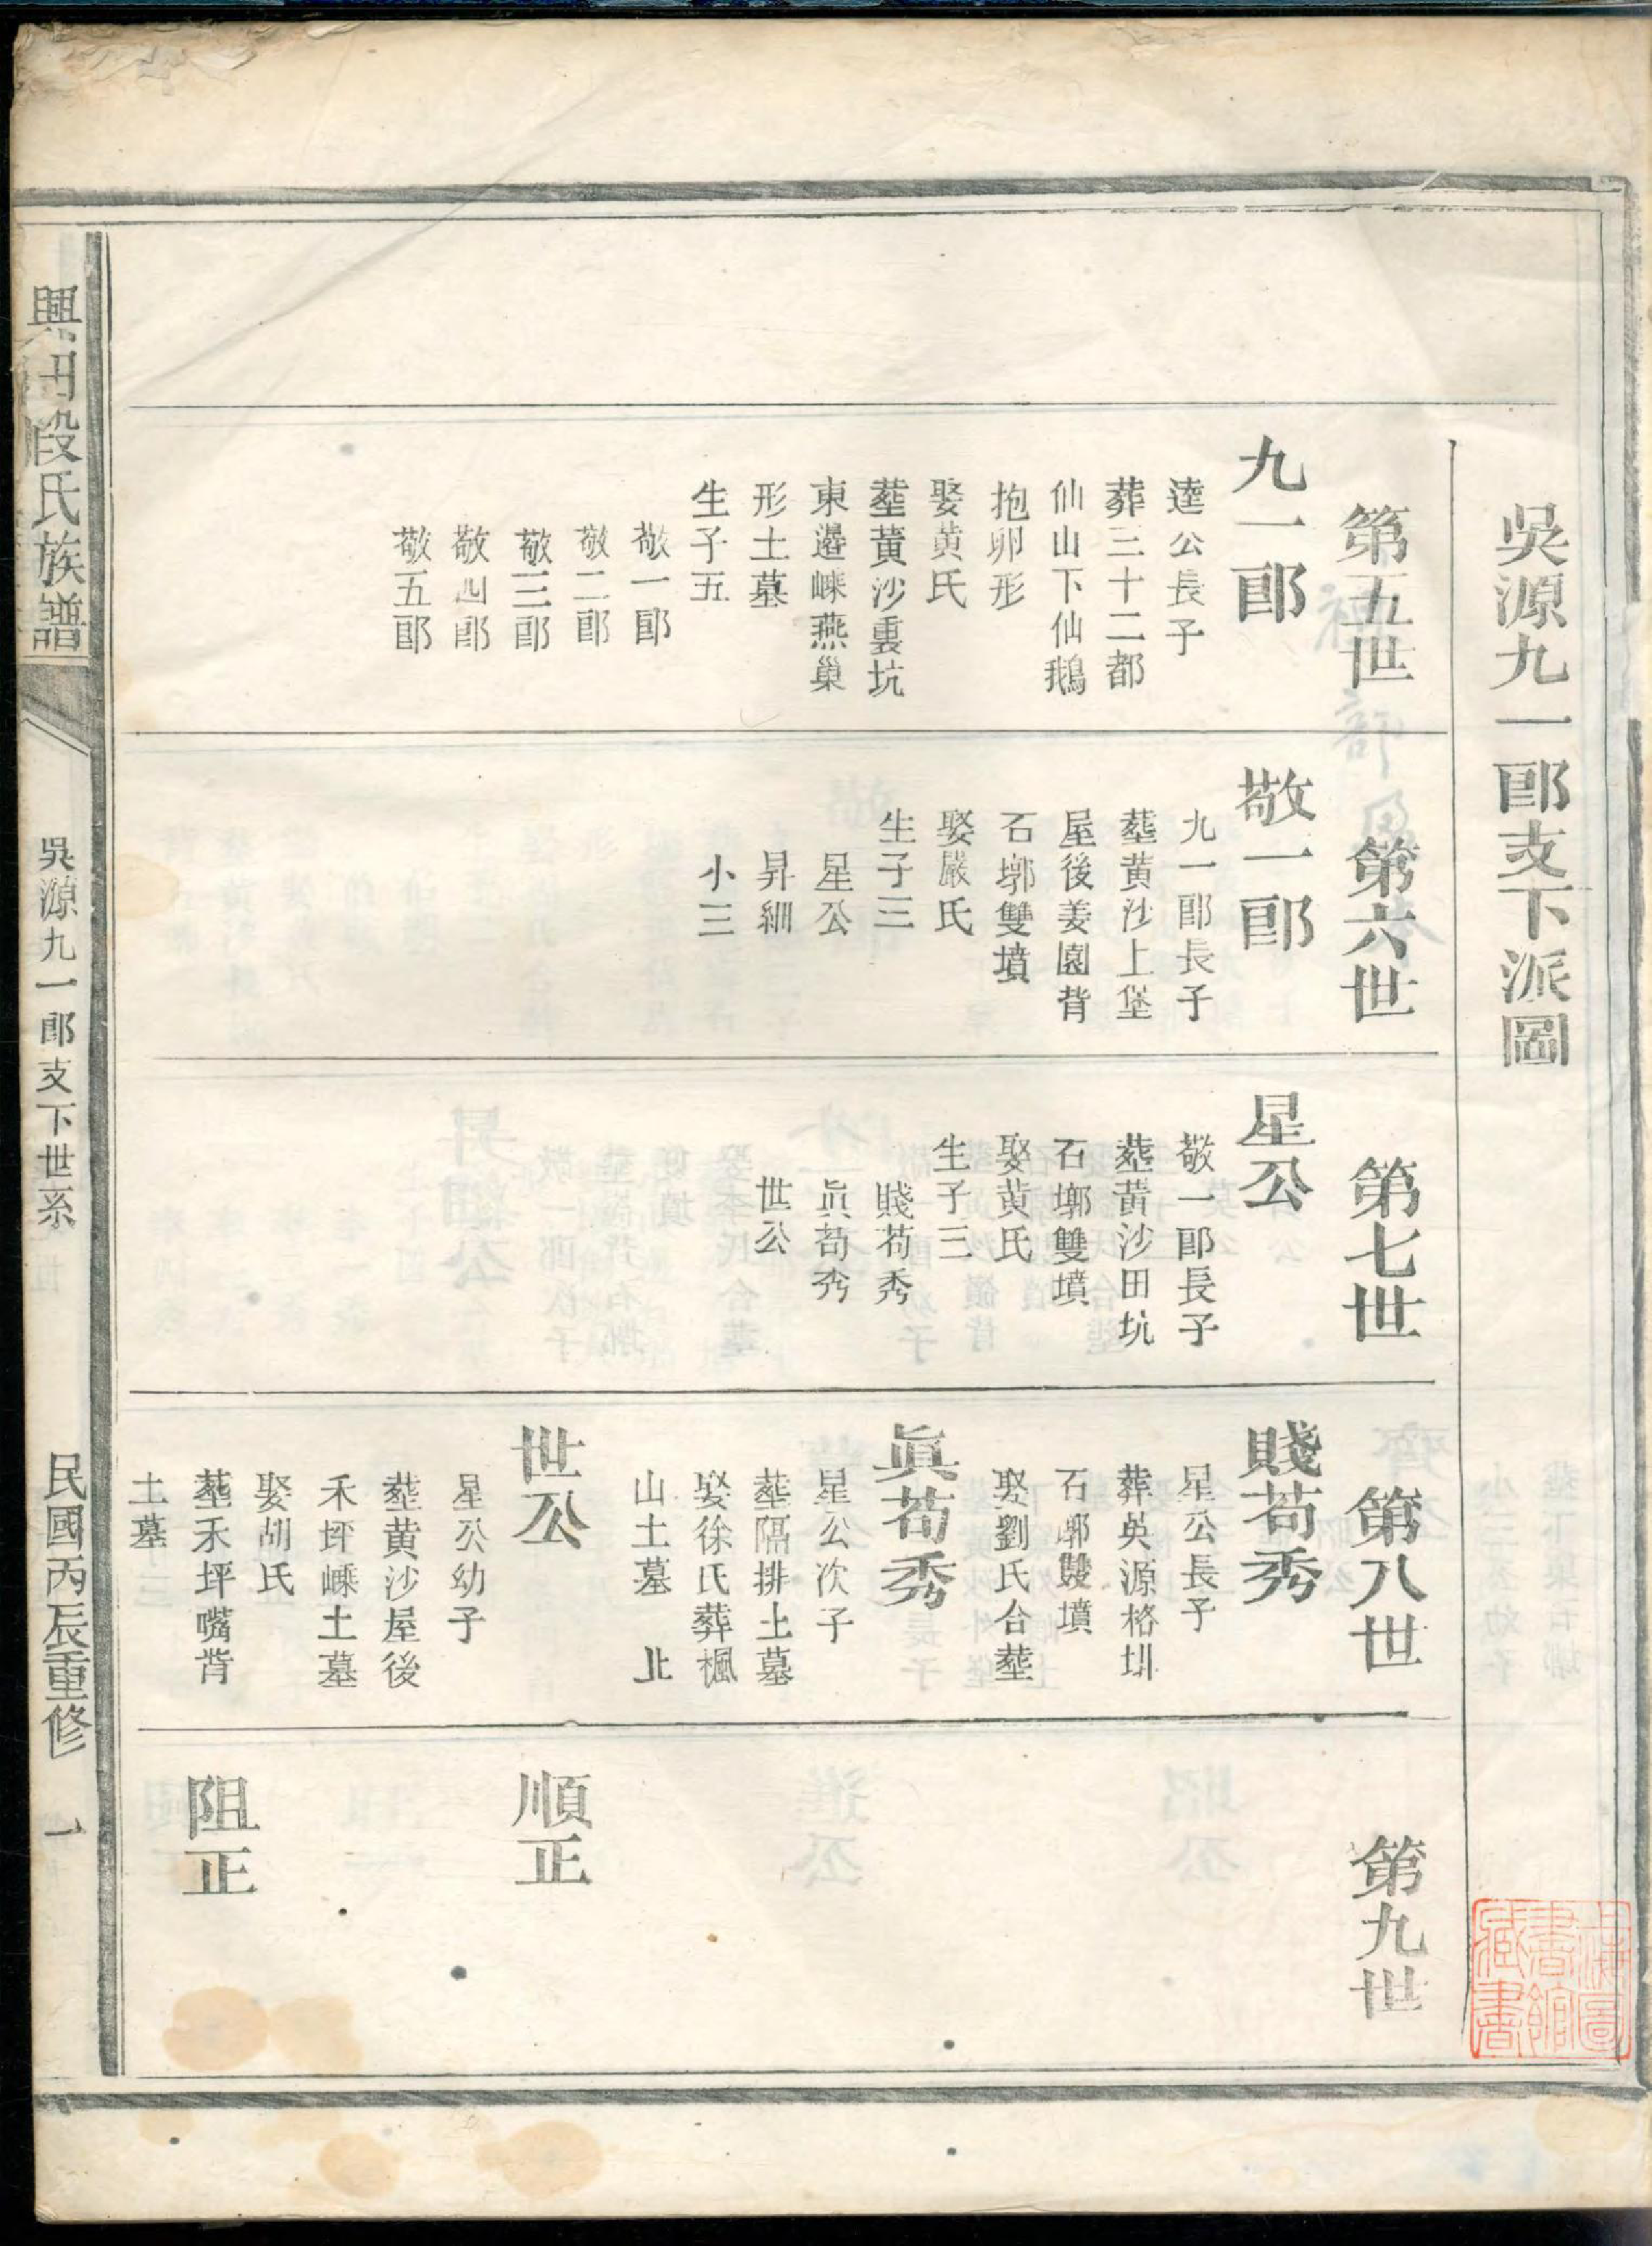 吳源九一郎支下派圖
第五世
九一郎
達公長子
葬三十二都
仙山下仙鵝
抱卵形
娶黄氏
塟黄沙裏坑
東邉㟙燕巢
形土墓
生子五
敬一郎
敬二郎
敬三郎
敬四郎
敬五郎
第六世
敬一郎
九一郎長子
塟黄沙上堡
屋後姜園背
石墎雙墳
娶嚴氏
生子三
星公
昇細
小三
第七世
星公
敬一郎長子
塟黄沙田坑
石墎雙墳
娶黄氏
生子三
賤苟秀
眞苟秀
世公
第八世
賤苟秀
星公長子
葬吳源格圳
石墎雙墳
娶劉氏合塟
眞苟秀
星公次子
塟隔排土墓
娶徐氏葬楓
山土墓 北
世公
星公幼子
塟黄沙屋後
禾坪㟙土墓
娶胡氏
塟禾坪嘴背
土墓
第九世
順正
阻正
興田段氏族譜
吳源九一郎支下世系
民國丙辰重修
一
上海圖書館藏書